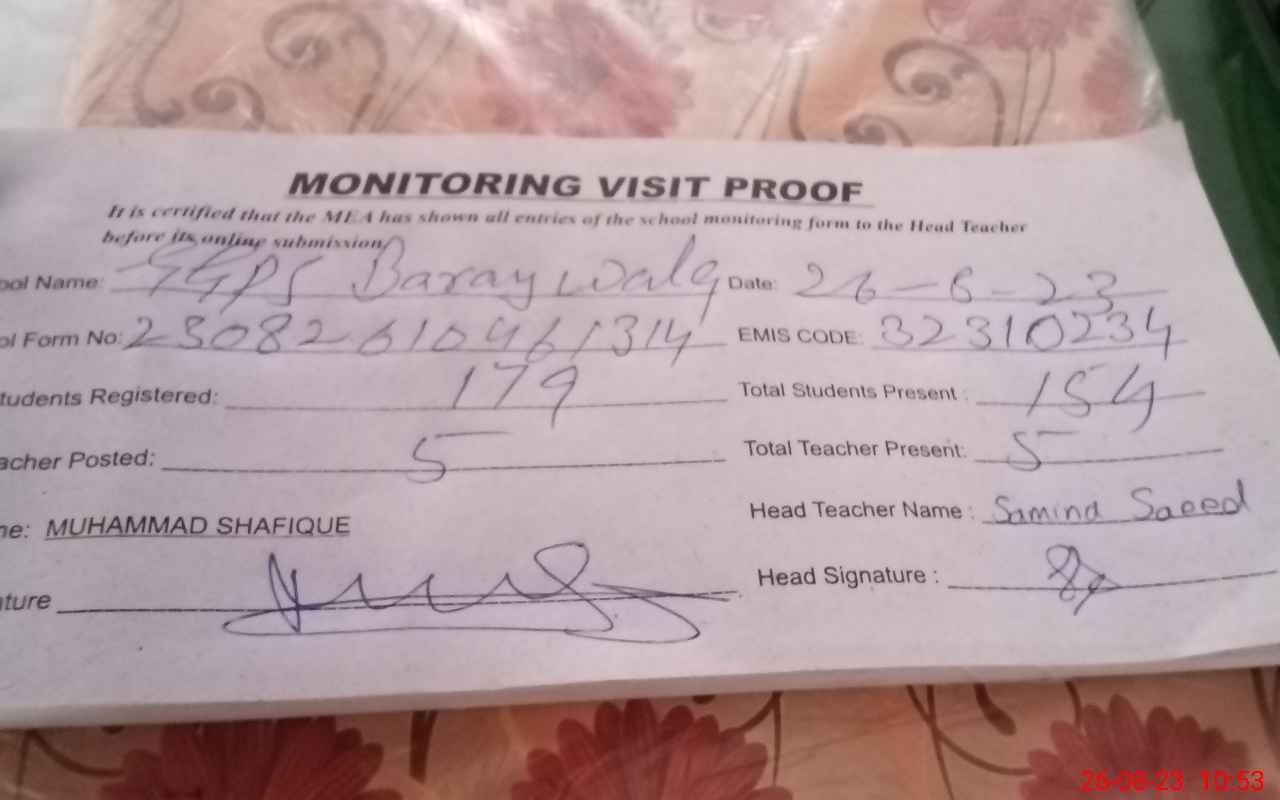 MONITORING VISIT PROOF
It is certified that the MEA has shown all entries of the school monitoring form to the Head Teacher
before its online submission
ool Name: GGPS Baray wala Date: 26-8-23
ol Form No: 23082610461314 EMIS CODE: 32310234
tudents Registered: 179 Total Students Present: 154
acher Posted: 5 Total Teacher Present: 5
Head Teacher Name: Samina Saeed
ne: MUHAMMAD SHAFIQUE
Head Signature:
ature
26-08-23 10:53